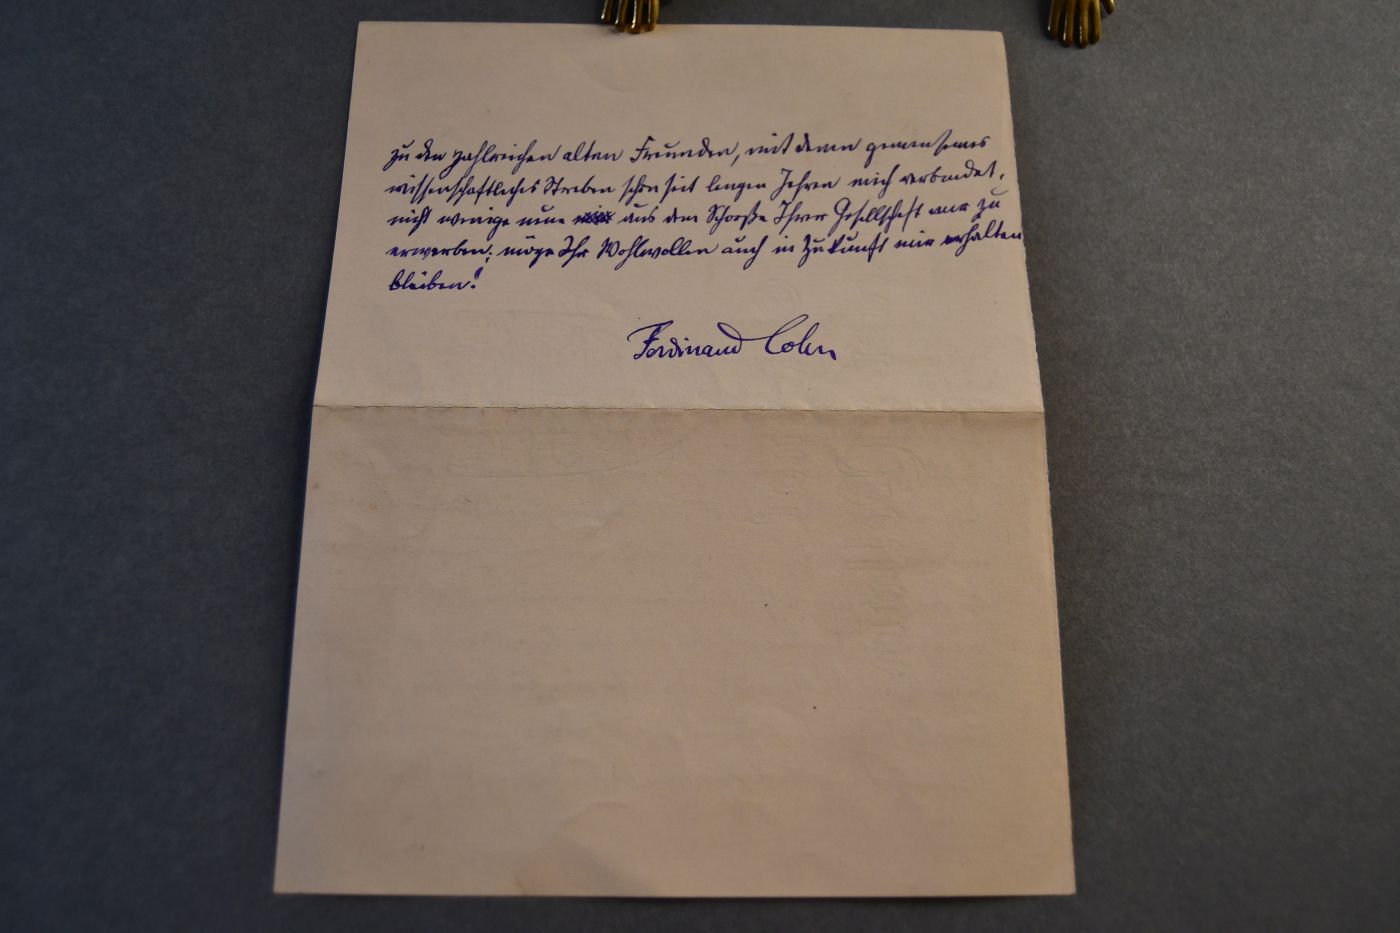 zu den zahlreichen alten Freunden, mit denen gemeinsames
wissenschaftliches Streben schon seit langen Jahren mich verbindet,
nicht wenige neue aus dem Schooße Ihrer Gesellschaft zu
erwerben; möge Ihr Wohlwollen auch in Zukunft mir erhalten
bleiben!
Ferdinand Cohn